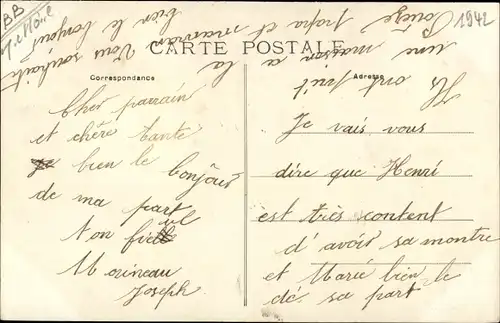 1942
BB
CARTE POSTALE
Correspondance
Adresse
Cher parrain
et chère tante
bien le bonjour
de ma part
ton
Morineau
Joseph
Je vais vous
dire que Henri
est très content
d'avoir sa montre
et Marie bien le
de sa part
Ils ont fait
une maison a la
papa et maman
Vous souhaite
bien le bonjour